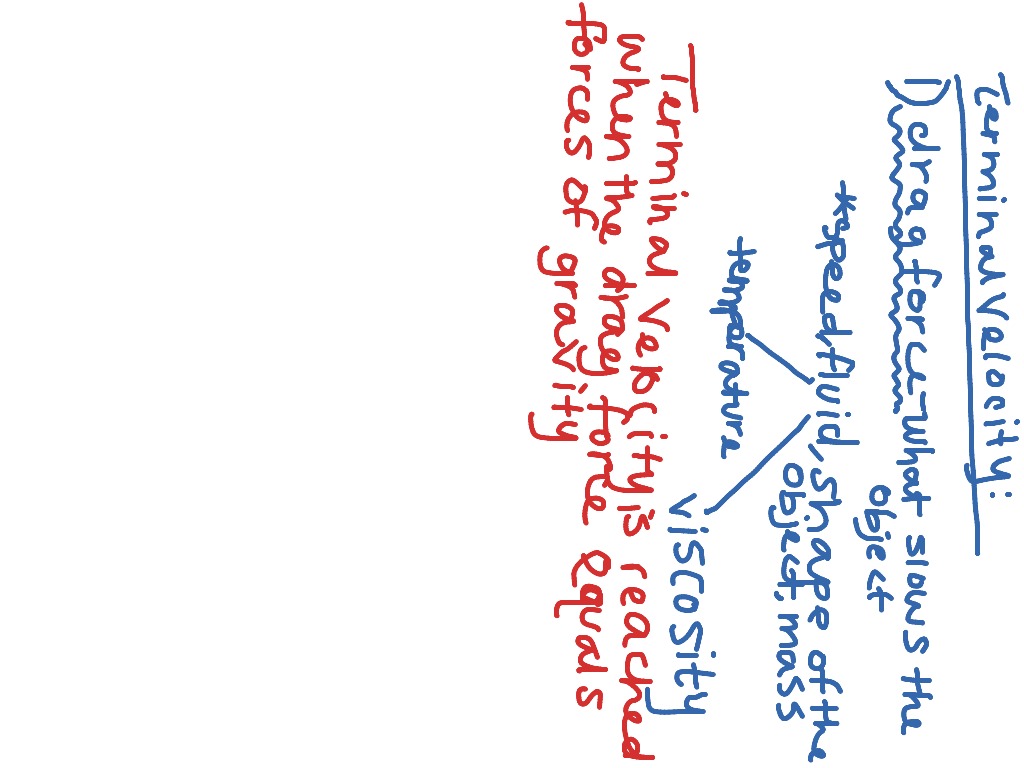 Terminal Velocity:
1) drag force - what slows the
object
*speed, fluid, shape of the
object, mass
temperature
viscosity
Terminal Velocity is reached
when the drag force equals
forces of gravity